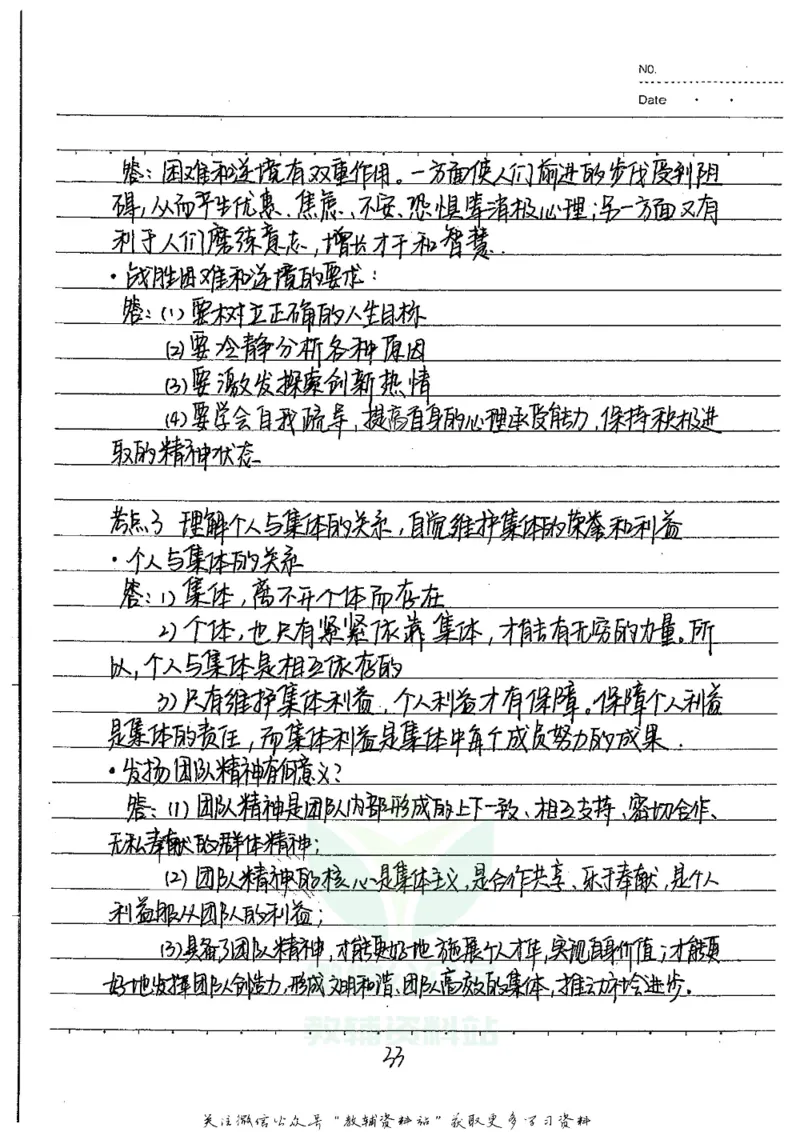 NO.
Date
答：困难和逆境有双重作用。一方面使人们前进的步伐受到阻
碍，从而产生忧患、焦虑、不安、恐惧等消极心理；另一方面又有
利于人们磨练意志，增长才干和智慧.
·战胜困难和逆境的要求：
答：(1)要树立正确的人生目标
(2)要冷静分析各种原因
(3)要激发探索创新热情
(4)要学会自我疏导，提高自身的心理承受能力，保持积极进
取的精神状态
考点3 理解个人与集体的关系，自觉维护集体的荣誉和利益
·个人与集体的关系
答：1)集体，离不开个体而存在
2)个体，也只有紧紧依靠集体，才能有无穷的力量。所
以，个人与集体是相互依存的
3)只有维护集体利益，个人利益才有保障。保障个人利益
是集体的责任，而集体利益是集体中每个成员努力的成果.
·发扬团队精神有何意义？
答：(1)团队精神是团队内部形成的上下一致、相互支持、密切合作、
无私奉献的群体精神；
(2)团队精神的核心是集体主义，是合作共享、乐于奉献，是个人
利益服从团队的利益；
(3)具备了团队精神，才能更好地施展个人才华，实现自身价值；才能更
好地发挥团队创造力，形成文明和谐、团队高效的集体，推动社会进步。
教辅资料站
33
关注微信公众号“教辅资料站”获取更多学习资料